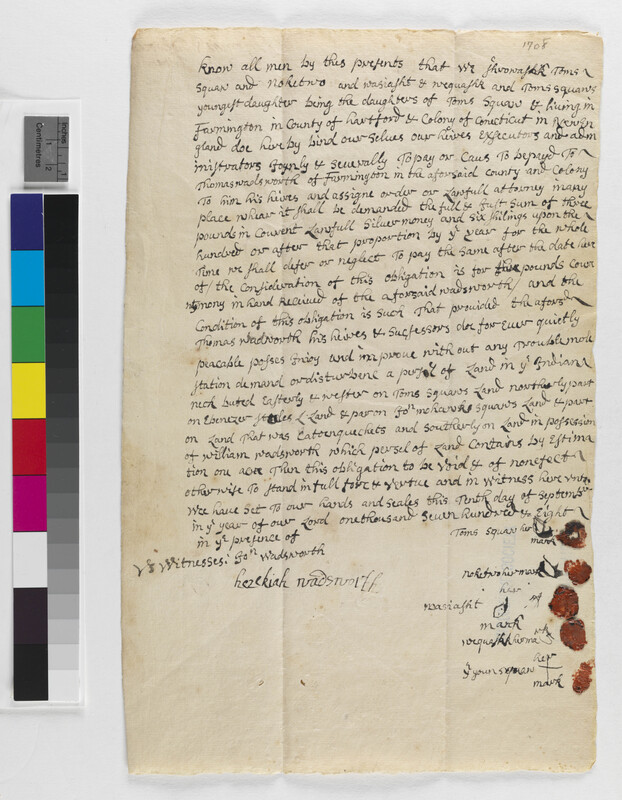 1708
Know all men by thes presents that we Throwashk Toms
Squaw and Noketwo and wasiasht & wequashk and Toms squaws
youngest daughter being the daughters of Toms Squaw & living in
Farmington in County of hartford & Colony of Conecticut in New en
gland doe here by bind our Selves our heires Executors and adm
ministrators Joynly & Severally To pay or Caus To be payd To
Thomas wadsworth of Farmington in the aforsaid County and Colony
To him his heires and assigne order or Lawfull attorney in any
place whear it shall be demanded the full & Just Sum of three
pounds in Current Lawfull Silver money and Six shilings upon the
hundred or after that proportion by ye year for the whole
Time we shall defer or neglect To pay the Same after the date here
of / the Consideration of this obligation is for three pounds Cour
mony in hand Received of the aforsaid wadsworth / and the
Condition of this obligation is Such That provided the afors
Thomas wadsworth his heires & Successors doe for ever quietly
peacable posses Injoy and improve with out any Trouble mole
station demand or disturbenc a persel of Land in ye Indian
neck buted Easterly & wester on Toms Squaws Land northerly part
on Ebenezer Steeles Land & par on Jon mohawks squaws Land & part
on Land That was Eatoenqueckets and Southerly on Land in possession
of william wadsworth which persel of Land Contains by Estima
tion one acre Then this obligation to be Void & of nonefect
otherwise To Stand in full forc & Vertice and in Witness here unto
We have Set To our hands and Seales this Tenth day of Septembr
in ye year of our Lord one thousand Seven hundred & Eight
in ye presence of
Toms squaw her
mark
Witnesses: Jon Wadsworth
hezekiah wadsworth
noketwo her mark
her
wasiasht
mark
wequashk her mark
her
ye youn squaw
mark
Inches
Centimetres
1
2